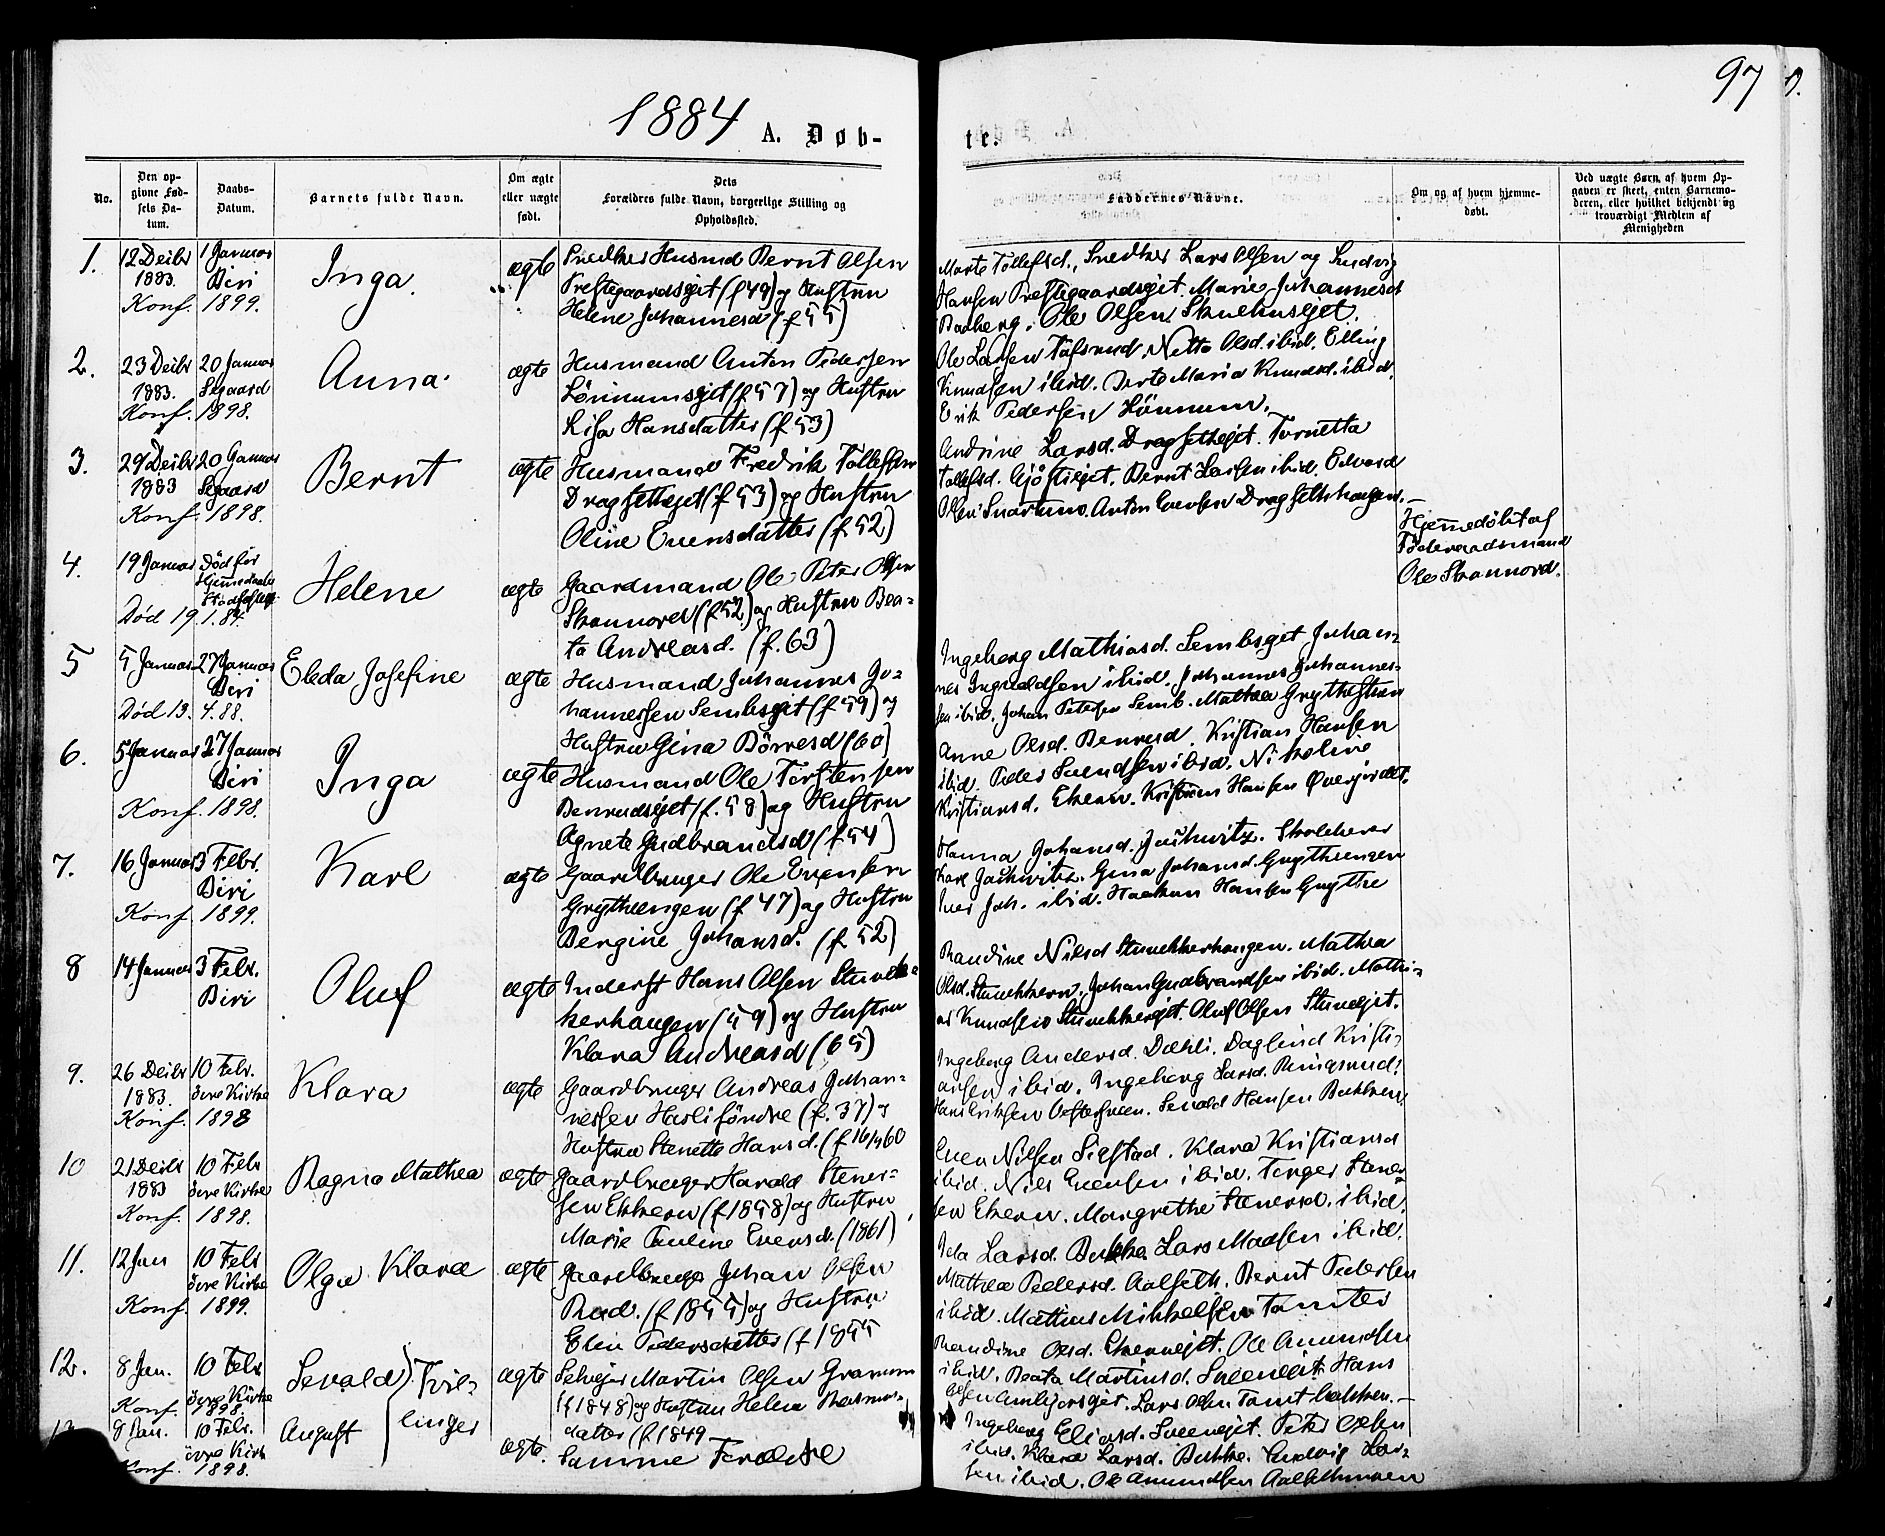 1884 A. Døb-
te.
97
No.
Den op-
givne Fød-
sels Da-
tum.
Daabs-
Datum.
Barnets fulde Navn.
Om ægte
eller uægte
født.
Dets
Forældres fulde Navn, borgerlige Stilling og
Opholdssted.
Faddernes Navne.
Om og af hvem hjemme-
døbt.
Ved uægte Børn, af hvem Op-
gaven er skeet, enten Barnemo-
deren, eller hvilket bekjendt og
troværdigt Medlem af
Menigheden
1.
12 Decbr
1883.
Konf. 1899.
1 Januar
Biri
Inga
ægte
Snedker Husmd Bernt Olsen
Prestegaardsejet (f 49) og Hustru
Helene Johannesd (f 55)
Marte Tollefsd., Snedker Lars Olsen og Ludvig
Hansen Prestegaardsejet. Marie Johannesd
Ole Olsen Skuehusejet.
2.
23 Decbr
1883.
Konf. 1898.
20 Januar
Segaard
Anna
ægte
Husmand Anton Pedersen
Lönnumsejet (f 57) og Hustru
Lisa Hansdatter (f 53)
Ole Larsen Nette Olsd. ibid. Elling
Knudsen ibid. Dorte Maria Knudsd. ibid.
Erik Pedersen Lönnum.
3.
29 Decbr
1883
Konf. 1898.
20 Januar
Segaard
Bernt
ægte
Husmand Fredrik Tollefsen
Dragsetejet (f 53) og Hustru
Oline Evensdatter (f 52)
Andrine Larsd. Dragsetejet. Tornetta
Tollefsd. Bernt Larsen ibid. Edvard
Olsen Snartum. Anton Evensen Dragsethaugen.
4.
19 Januar
Død før
Hjemmedaab
Død 19.1.84.
Helene
ægte
Gaardmand Ole Peter Olsen
Skonnord (f 52) og Hustru Bea-
ta Andreasd. (f. 63)
Hjemmedöbt af
Föderaadsmand
Ole Skonnord.
5
5 Januar
27 Januar
Biri
Død 13.4.88.
Eleda Josefine
ægte
Husmand Johannes Jo-
hannessen Sembsejet (f 59) og
Hustru Gina Börresd (60)
Ingeborg Mathiasd. Sembsejet Johan-
nes Ingvaldsen ibid. Johannes Johannes-
sen ibid. Johan Petersen Semb. Mathea Grythestuen
6.
5 Januar
27 Januar
Biri
Konf. 1898.
Inga
ægte
Husmand Ole Torstensen
Benrudsejet (f. 58) og Hustru
Agnete Gudbrandsd (f 54)
Anne Olsd. Benrud. Kristian Hansen
ibid. Peder Svendsen ibid. Nikoline
Kristiansd. Ekern. Kristian Hansen Overjordet.
7.
16 Januar
3 Febr.
Biri
Konf. 1899.
Karl
ægte
Gaardbruger Ole Evensen
Grytheengen (f 47) og Hustru
Bergine Johansd. (f 52)
Hanna Johansd. Jackwitz. Skolelærer
Karl Jackwitz. Gina Johansd. Grytheengen
Iver Joh. ibid. Haakon Hansen Grythe
8
14 Januar
3 Febr.
Biri
Oluf
ægte
Inderst Hans Olsen Stuvek-
kerhaugen (59) og Hustru
Klara Andreasd (65)
Randine Nilsd Stuvekkerhaugen. Mathea
Olsd. Stuvekkern. Johan Gudbrandsen ibid. Mathi-
as Knudsen Stuvekkerejet. Oluf Olsen Stuveejet.
9.
26 Decbr
1883.
Konf. 1898
10 Febr.
övre Kirke
Klara
ægte
Gaardbruger Andreas Johan-
nessen Hasli söndre (f. 37) og
Hustru Stenette Hansd. (f 16/4 60
Ingeborg Andersd. Dæhli. Daglind Kristi-
ansen ibid. Ingeborg Larsd. Ringsrud.
Sevald Hansen Bukken.
10
21 Decbr
1883
Konf. 1898.
10 Febr
övre Kirke
Ragna Mathea
ægte
Gaardbruger Harald Stener-
sen Ekkern (f 1858) og Hustru
Marie Pauline Evensd. (1861)
Even Nilsen Sigstad. Klara Kristiansd
ibid. Nils Evensen ibid. Torger Stener-
sen Ekern. Margrethe Stenersd. ibid.
11.
12 Jan
Konf. 1899.
10 Febr
övre Kirke
Olga Klara
ægte
Gaardbruger Johan Olsen
Rud. (f 1855) og Hustru
Elin Pedersdatter (f 1855
Ida Larsd. Bukke. Lars Madsen ibid.
Mathea Pedersd. Aalseth. Bernt Pedersen
ibid. Mathias Mikkelsen Tomter
12.
8 Jan.
Konf. 1898.
10 Febr
övre Kirke
Sevald } Tvil-
ægte
Selvejer Martin Olsen Granum
(f 1848) og Hustru Helene Rasmus-
datter (f 1849
Randine Olsd. Ekernejet. Ole Amundsen
ibid. Beata Martinsd. Sveenejet. Hans
Olsen Lars Olsen Tomtbakken.
8 Jan.
Konf. 1898.
10 Febr.
övre Kirk
August } linger
ægte.
Samme Forældre
Ingeborg Eliasd. Sveenejet. Peter Olsen
ibid. Klara Larsd. Bukke. Ludvig Lar-
sen ibid. Ole Amundsen